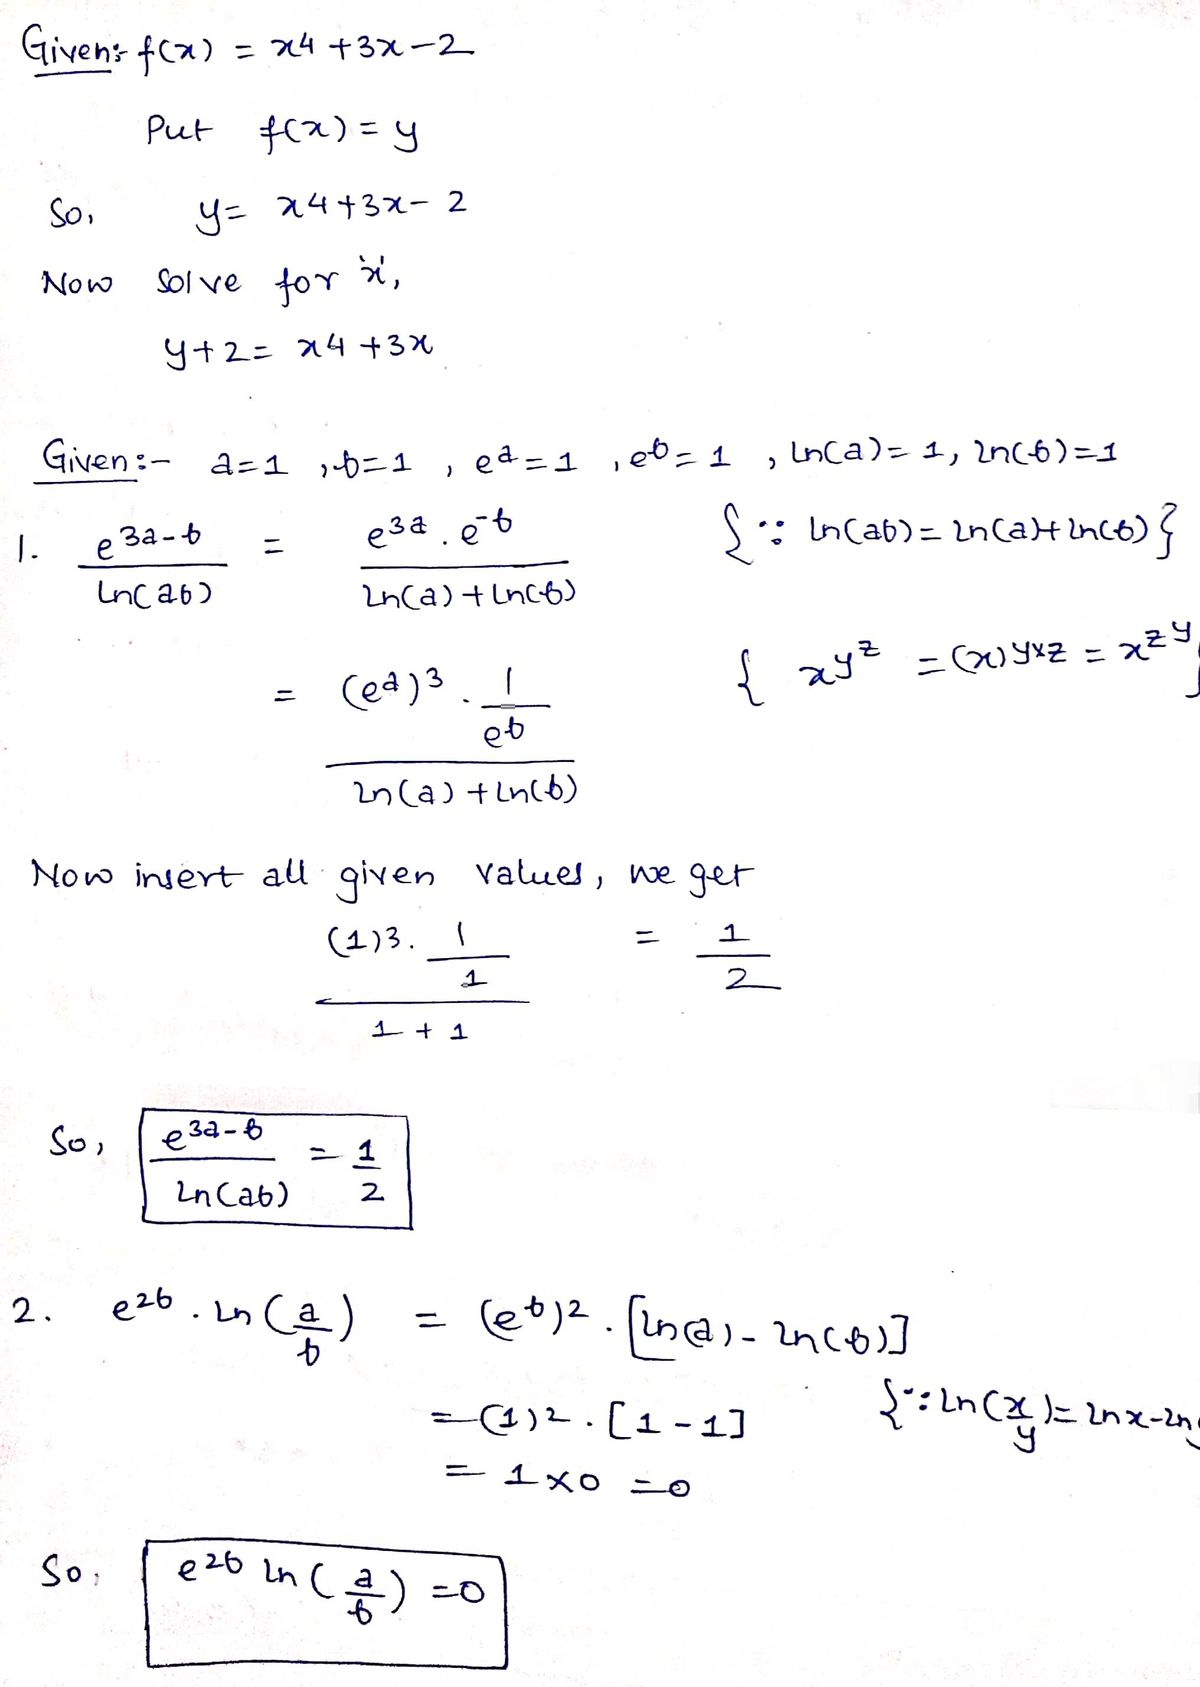 Given:- f(x) = x4 + 3x - 2
Put f(x) = y
So, y = x4 + 3x - 2
Now solve for 'x',
y + 2 = x4 + 3x
Given :- a=1 , b=1 , e^a = 1 , e^b = 1 , ln(a) = 1, ln(b) = 1
1. e^(3a-b) / ln(ab) = e^(3a) . e^(-b) / ln(a) + ln(b) {∵ ln(ab) = ln(a) + ln(b)}
= (e^a)^3 . 1/e^b / ln(a) + ln(b) { xy^z = (x)y×z = x^zy }
Now insert all given values, we get
(1)3 . 1/1 / 1 + 1 = 1/2
So, e^(3a-b) / ln(ab) = 1/2
2. e^(2b) . ln(a/b) = (e^b)2 . [ln(a) - ln(b)]
= (1)2 . [1 - 1] {∵ ln(x/y) = ln x - ln y
= 1 × 0 = 0
So, e^(2b) ln(a/b) = 0